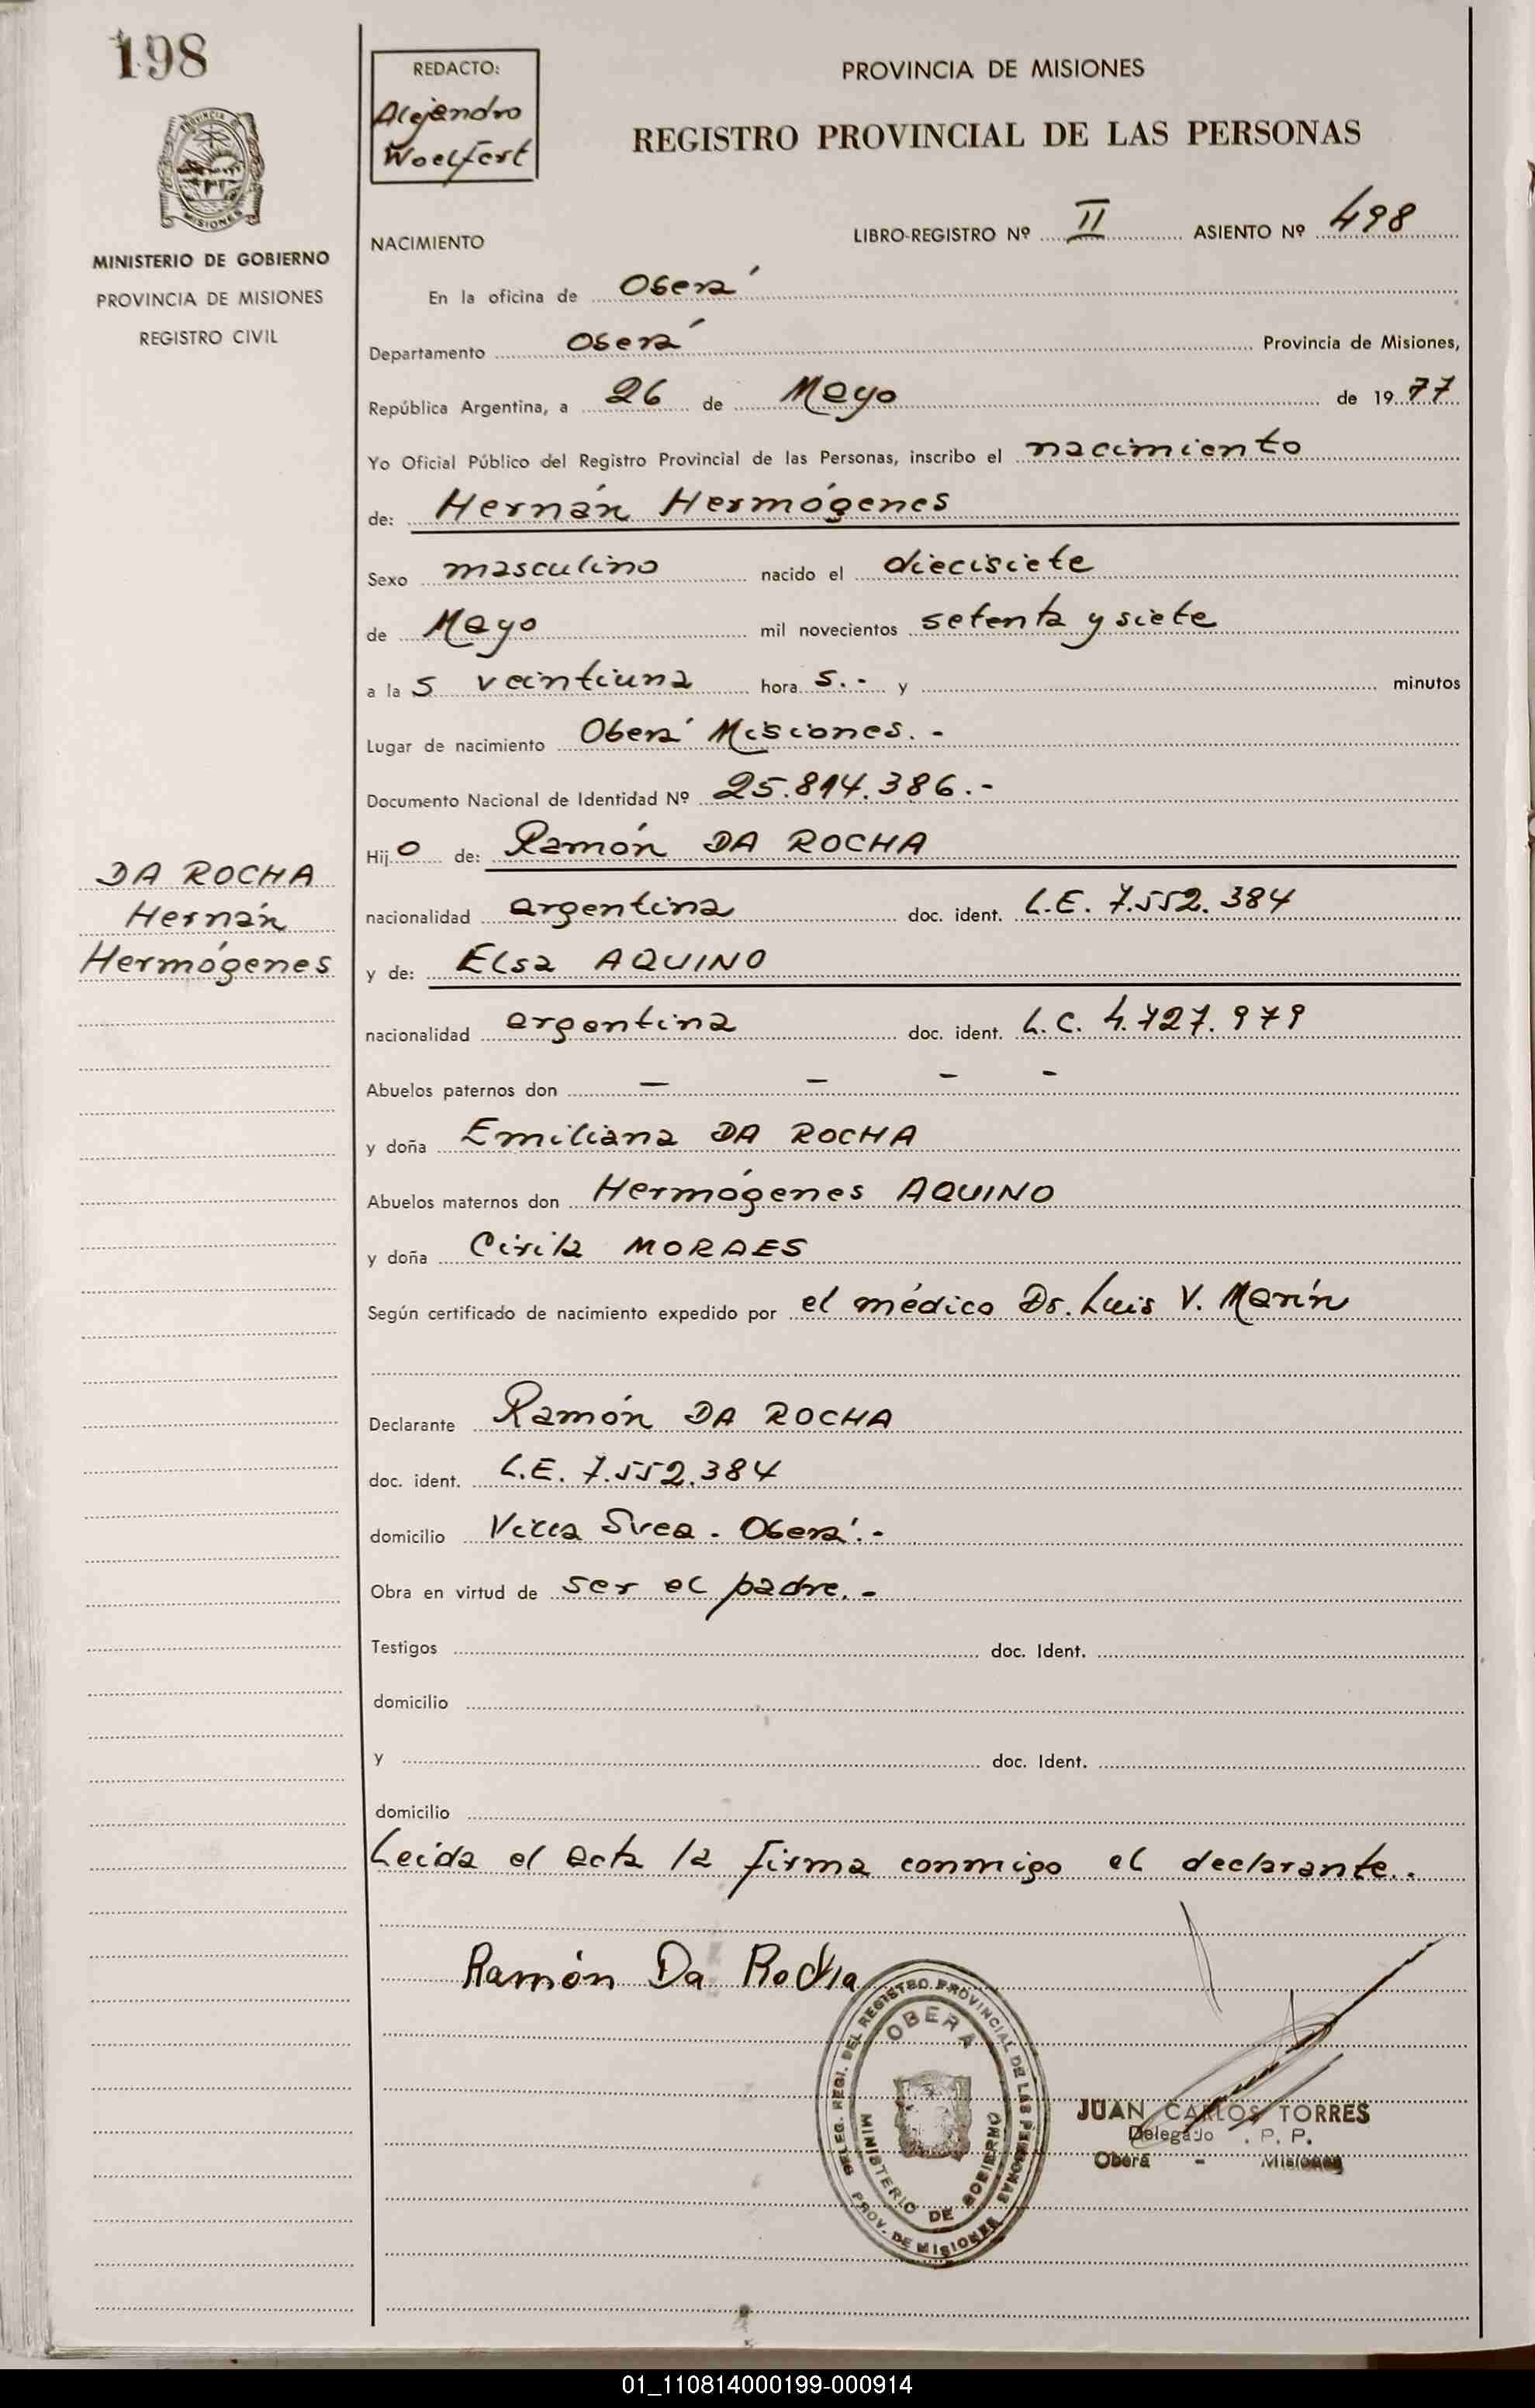 198
PROVINCIA DE MISIONES
MINISTERIO DE GOBIERNO
PROVINCIA DE MISIONES
REGISTRO CIVIL
DA ROCHA
Hernán
Hermógenes
REDACTO:
Alejandro
Woelfert
PROVINCIA DE MISIONES
REGISTRO PROVINCIAL DE LAS PERSONAS
NACIMIENTO LIBRO-REGISTRO Nº II ASIENTO Nº 498
En la oficina de Oberá
Departamento Oberá Provincia de Misiones,
República Argentina, a 26 de Mayo de 1977
Yo Oficial Público del Registro Provincial de las Personas, inscribo el nacimiento
de: Hernán Hermógenes
Sexo masculino nacido el diecisiete
de Mayo mil novecientos setenta y siete
a las veintiuna hora s.- y minutos
Lugar de nacimiento Oberá Misiones.-
Documento Nacional de Identidad Nº 25.814.386.-
Hijo de: Ramón DA ROCHA
nacionalidad argentina doc. ident. L.E. 7.552.384
y de: Elsa AQUINO
nacionalidad argentina doc. ident. L.C. 4.727.979
Abuelos paternos don - - - -
y doña Emiliana DA ROCHA
Abuelos maternos don Hermógenes AQUINO
y doña Cirila MORAES
Según certificado de nacimiento expedido por el médico Dr. Luis V. Marín
Declarante Ramón DA ROCHA
doc. ident. L.E. 7.552.384
domicilio Villa Svea - Oberá.-
Obra en virtud de ser el padre.-
Testigos doc. Ident.
domicilio
y doc. Ident.
domicilio
Leida el acta la firma conmigo el declarante..
Ramón Da Rocha
DELEG. REGI. DEL REGISTRO PROVINCIAL DE LAS PERSONAS
OBERA
MINISTERIO DE GOBIERNO
PROV. DE MISIONES
JUAN CARLOS TORRES
Delegado . P. P.
Oberá - Misiones
01_110814000199-000914